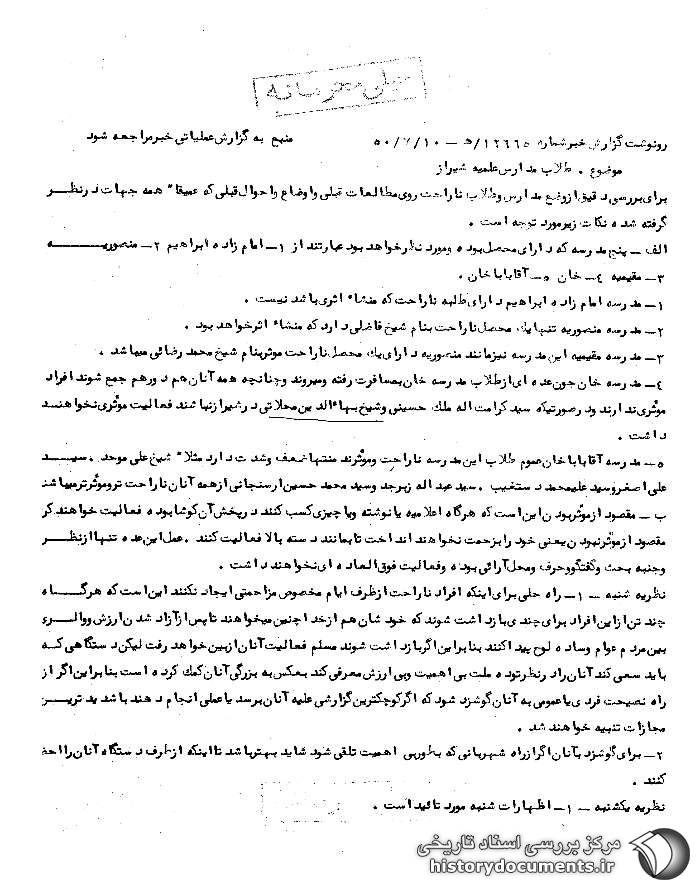 خیلی محرمانه
رونوشت گزارش خبر شماره ۱۲۶۶۵/ه‍ — ۵۰/۷/۱۰ منبع به گزارش عملیاتی خبر مراجعه شود
موضوع . طلاب مدارس علمیه شیراز
برای بررسی دقیق از وضع مدارس و طلاب ناراحت روی مطالعات قبلی و اوضاع و احوال قبلی که عمیقا" همه جهات در نظر
گرفته شده نکات زیر مورد توجه است .
الف — پنج مدرسه که دارای محصل بوده و مورد نظر خواهد بود عبارتند از ۱— امام زاده ابراهیم ۲— منصوریه
۳— مقیمیه ۴— خان ۵— آقاباباخان .
۱— مدرسه امام زاده ابراهیم دارای طلبه ناراحت که منشاء اثری باشد نیست .
۲— مدرسه منصوریه تنها یک محصل ناراحت بنام شیخ فاضلی دارد که منشاء اثر خواهد بود .
۳— مدرسه مقیمیه این مدرسه نیز مانند منصوریه دارای یک محصل ناراحت موثر بنام شیخ محمد رضائی میباشد .
۴— مدرسه خان چون عده ای از طلاب مدرسه خان بمسافرت رفته و میروند و چنانچه همه آنان هم دور هم جمع شوند افراد
موثری ندارند و در صورتیکه سید کرامت اله ملک حسینی و شیخ بهاءالدین محلاتی در شیراز نباشند فعالیت موثری نخواهند
داشت .
۵— مدرسه آقاباباخان عموم طلاب این مدرسه ناراحت و موثرند منتها ضعف و شدت دارد مثلا" شیخ علی موحد . سید
علی اصغر و سید علیمحمد دستغیب . سید عبداله زبرجد و سید محمد حسین ارسنجانی از همه آنان ناراحت تر و موثرتر میباشند
ب — مقصود از موثر بودن این است که هرگاه اعلامیه یا نوشته ویا چیزی کسب کنند در پخش آن کوشا بوده فعالیت خواهند کرد
مقصود از موثر نبودن یعنی خود را بزحمت نخواهند انداخت تا بمانند دسته بالا فعالیت کنند . عمل این عده تنها از نظر
وجنبه بحث و گفتگو و حرف و محل آرائی بوده و فعالیت فوق العاده ای نخواهند داشت .
نظریه شنبه — ۱— راه حلی برای اینکه افراد ناراحت از ظرف ایام مخصوص مزاحمتی ایجاد نکنند این است که هرگاه
چند تن از این افراد برای چندی بازداشت شوند که خودشان هم از خدا چنین میخواهند تا پس از آزاد شدن ارزش ووالری
بین مردم عوام وساده لوح پیدا کنند بنابراین اگر بازداشت شوند مسلم فعالیت آنان از بین خواهد رفت لیکن دستگاهی که
باید سعی کند آنان را در نظر توده ملت بی اهمیت وبی ارزش معرفی کند بعکس به بزرگی آنان کمک کرده است بنابراین اگر از
راه نصیحت فردی یا عمومی به آنان گوشزد شود که اگر کوچکترین گزارشی علیه آنان برسد یا عملی انجام دهند با شدیدترین
مجازات تنبیه خواهند شد .
۲— برای گوشزد بآنان اگر از راه شهربانی که بطور بی اهمیت تلقی شود شاید بهتر باشد تا اینکه از طرف دستگاه آنان را احضار
کنند .
نظریه یکشنبه — ۱— اظهارات شنبه مورد تائید است .
مرکز بررسی اسناد تاریخی
historydocuments.ir